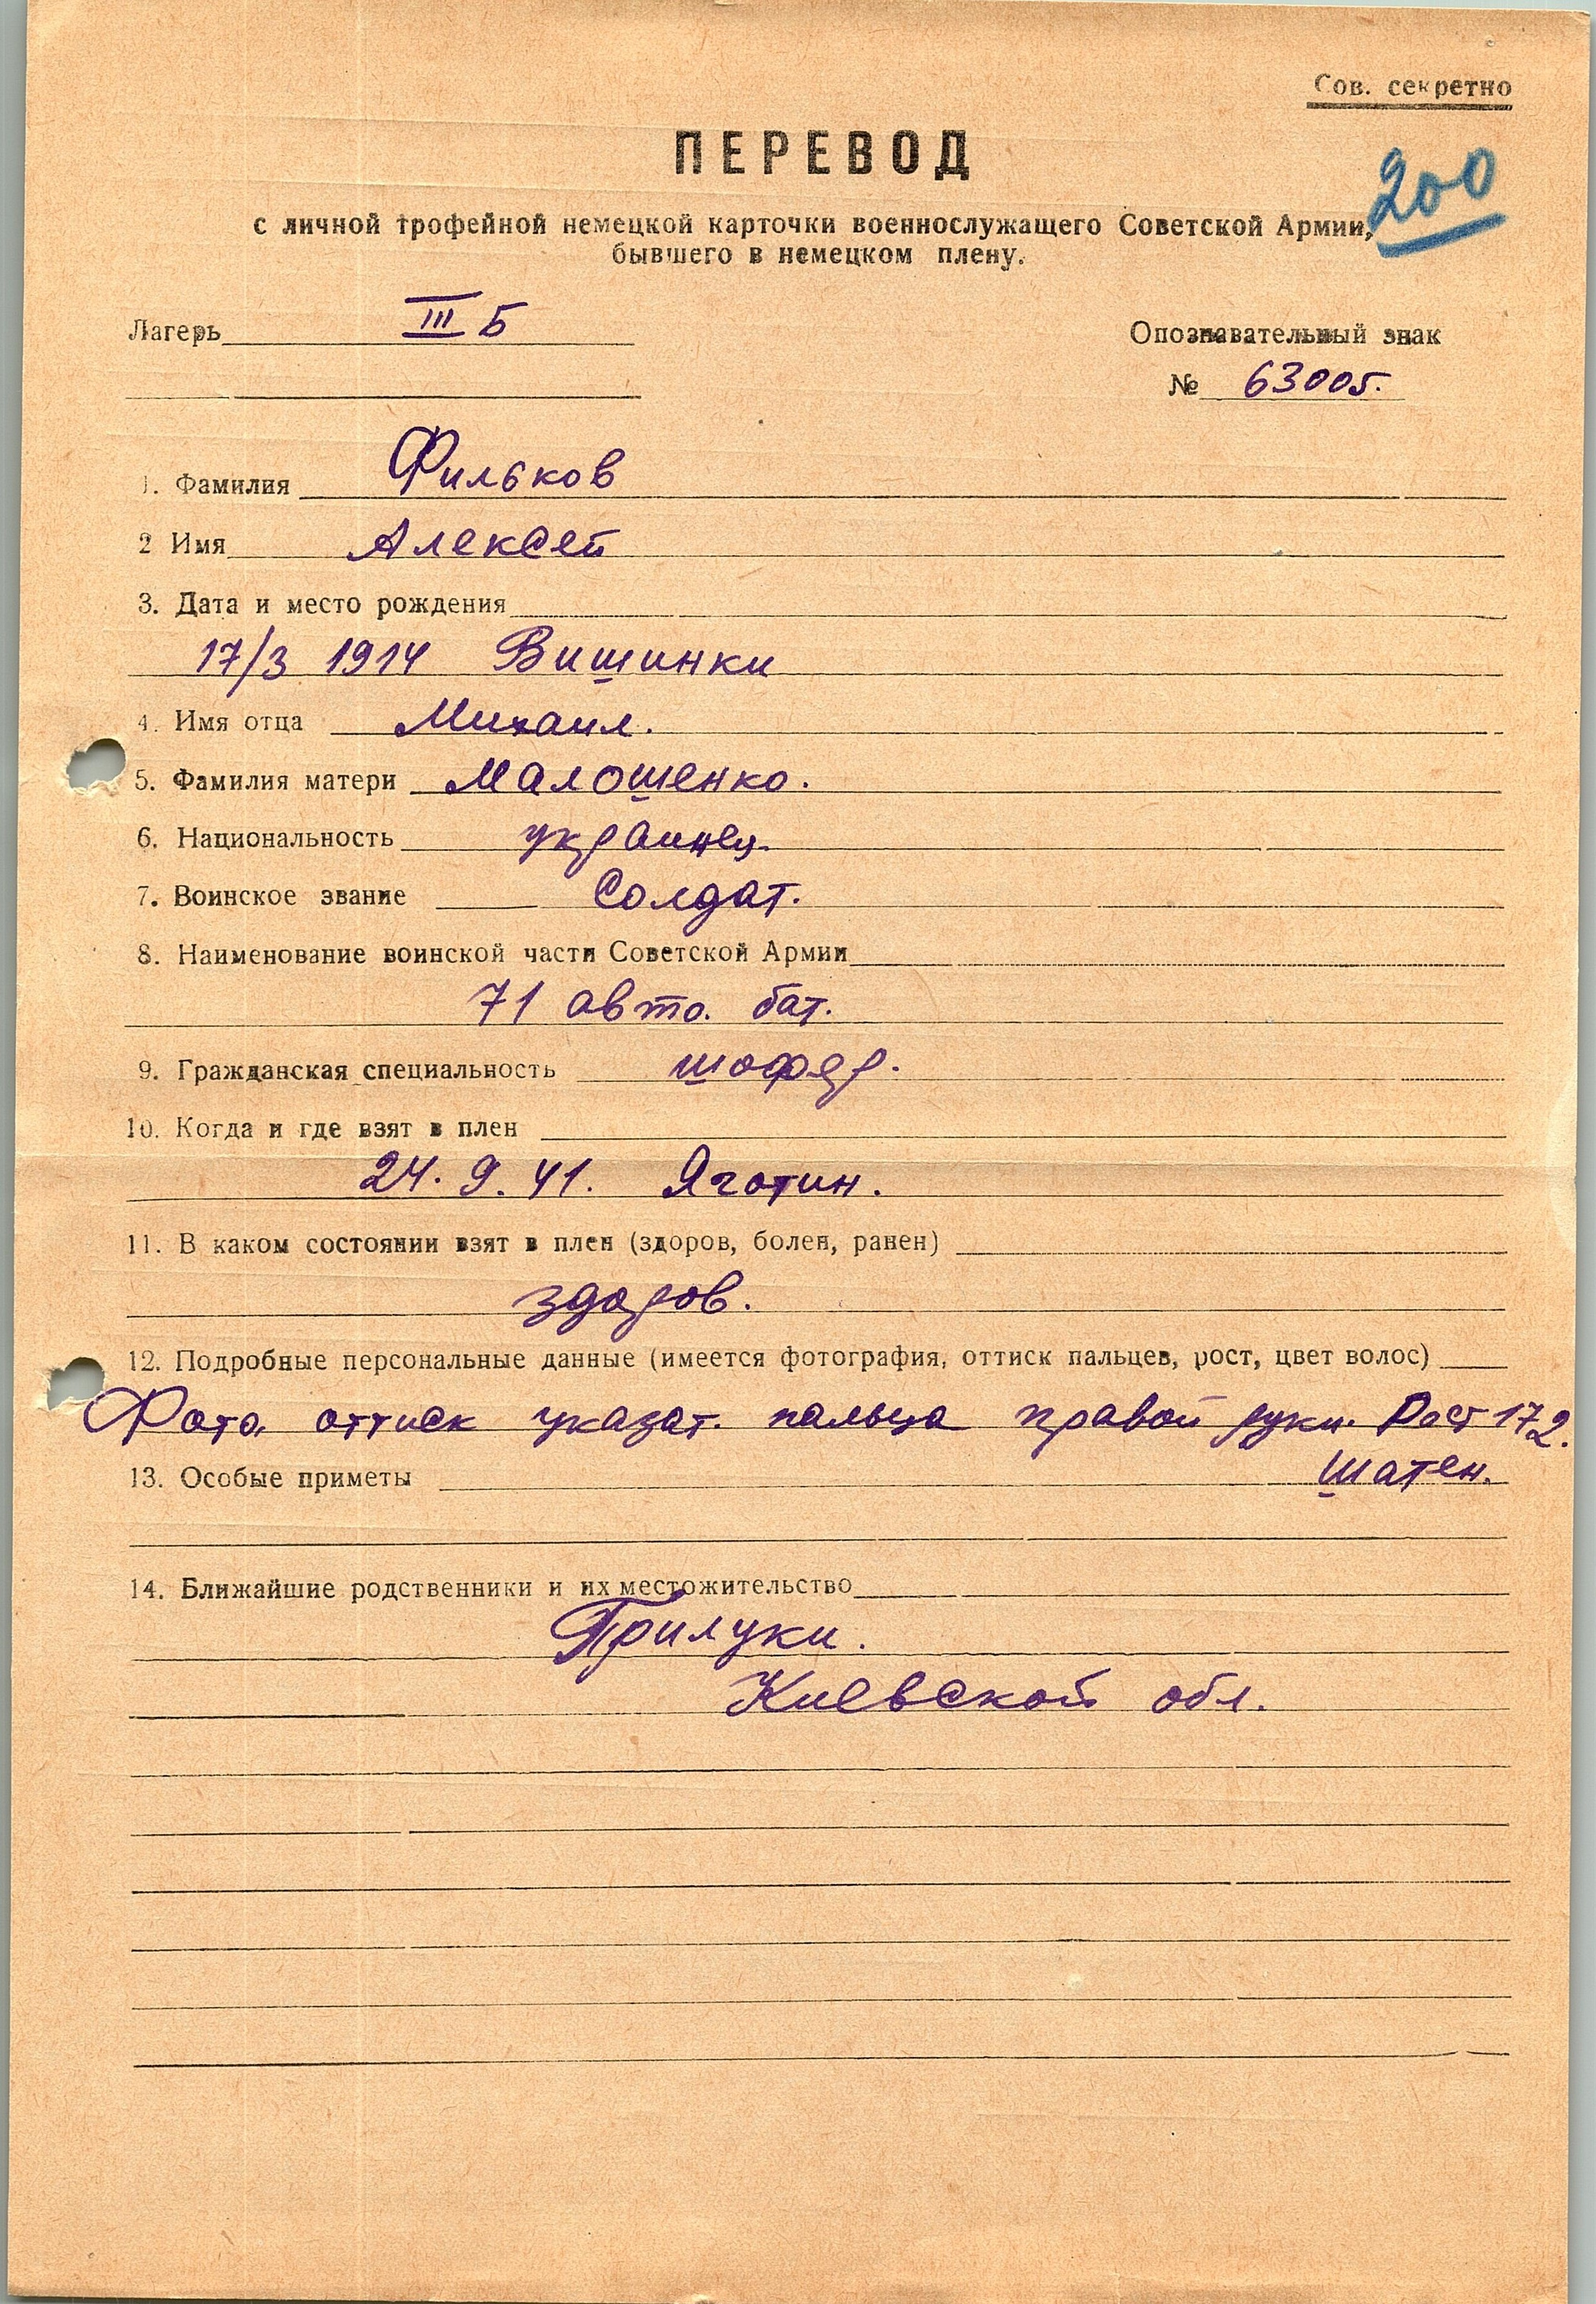 Сов. секретно
ПЕРЕВОД
200
с личной трофейной немецкой карточки военнослужащего Советской Армии,
бывшего в немецком плену.
Лагерь III Б
Опознавательный знак
№ 63005.
1. Фамилия Фильков
2 Имя Алексей
3. Дата и место рождения
17/3 1914 Вишинки
4. Имя отца Михаил.
5. Фамилия матери Малошенко.
6. Национальность украинец.
7. Воинское звание Солдат.
8. Наименование воинской части Советской Армии
71 авто. бат.
9. Гражданская специальность шофер.
10. Когда и где взят в плен
24. 9. 41. Яготин.
11. В каком состоянии взят в плен (здоров, болен, ранен)
здоров.
12. Подробные персональные данные (имеется фотография, оттиск пальцев, рост, цвет волос)
Фото. оттиск указат. пальца правой руки. Рост 172.
13. Особые приметы Шатен.
14. Ближайшие родственники и их местожительство
Прилуки.
Киевской обл.